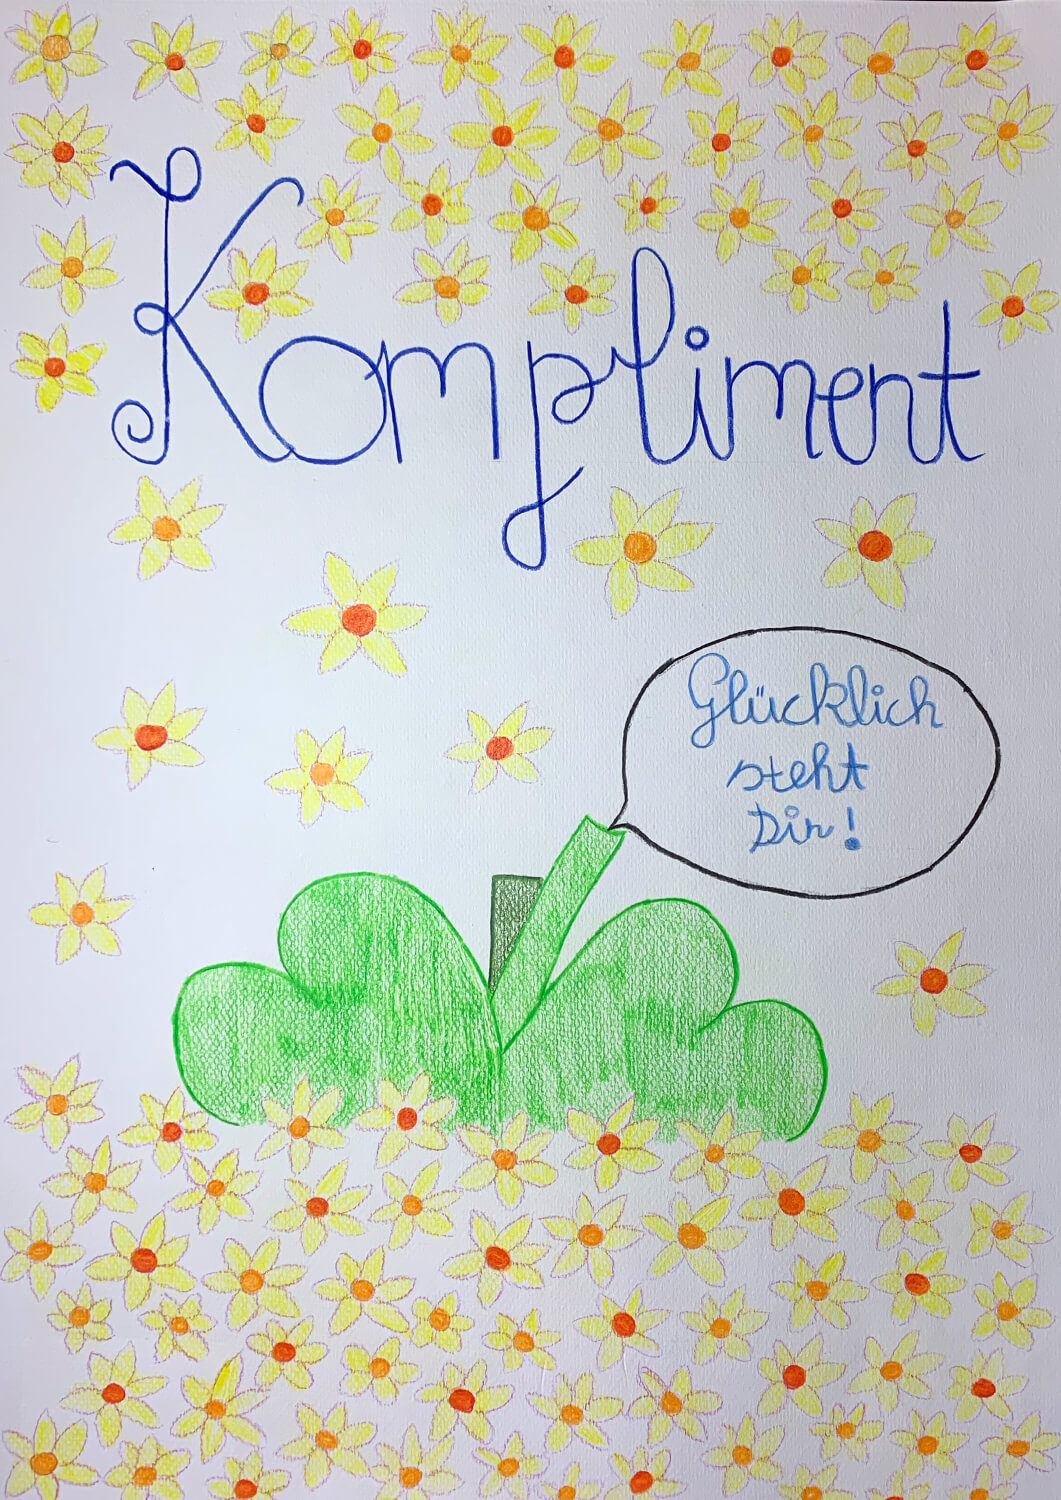 Kompliment
Glücklich
steht
Dir!